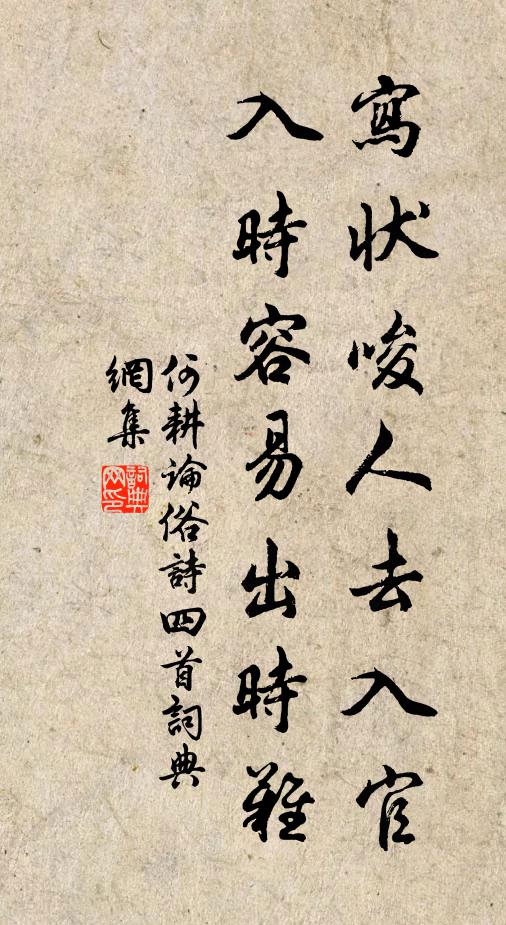 寫狀唆人去入官
入時容易出時難
何耕論俗詩四首詞典
網集
詞典網印